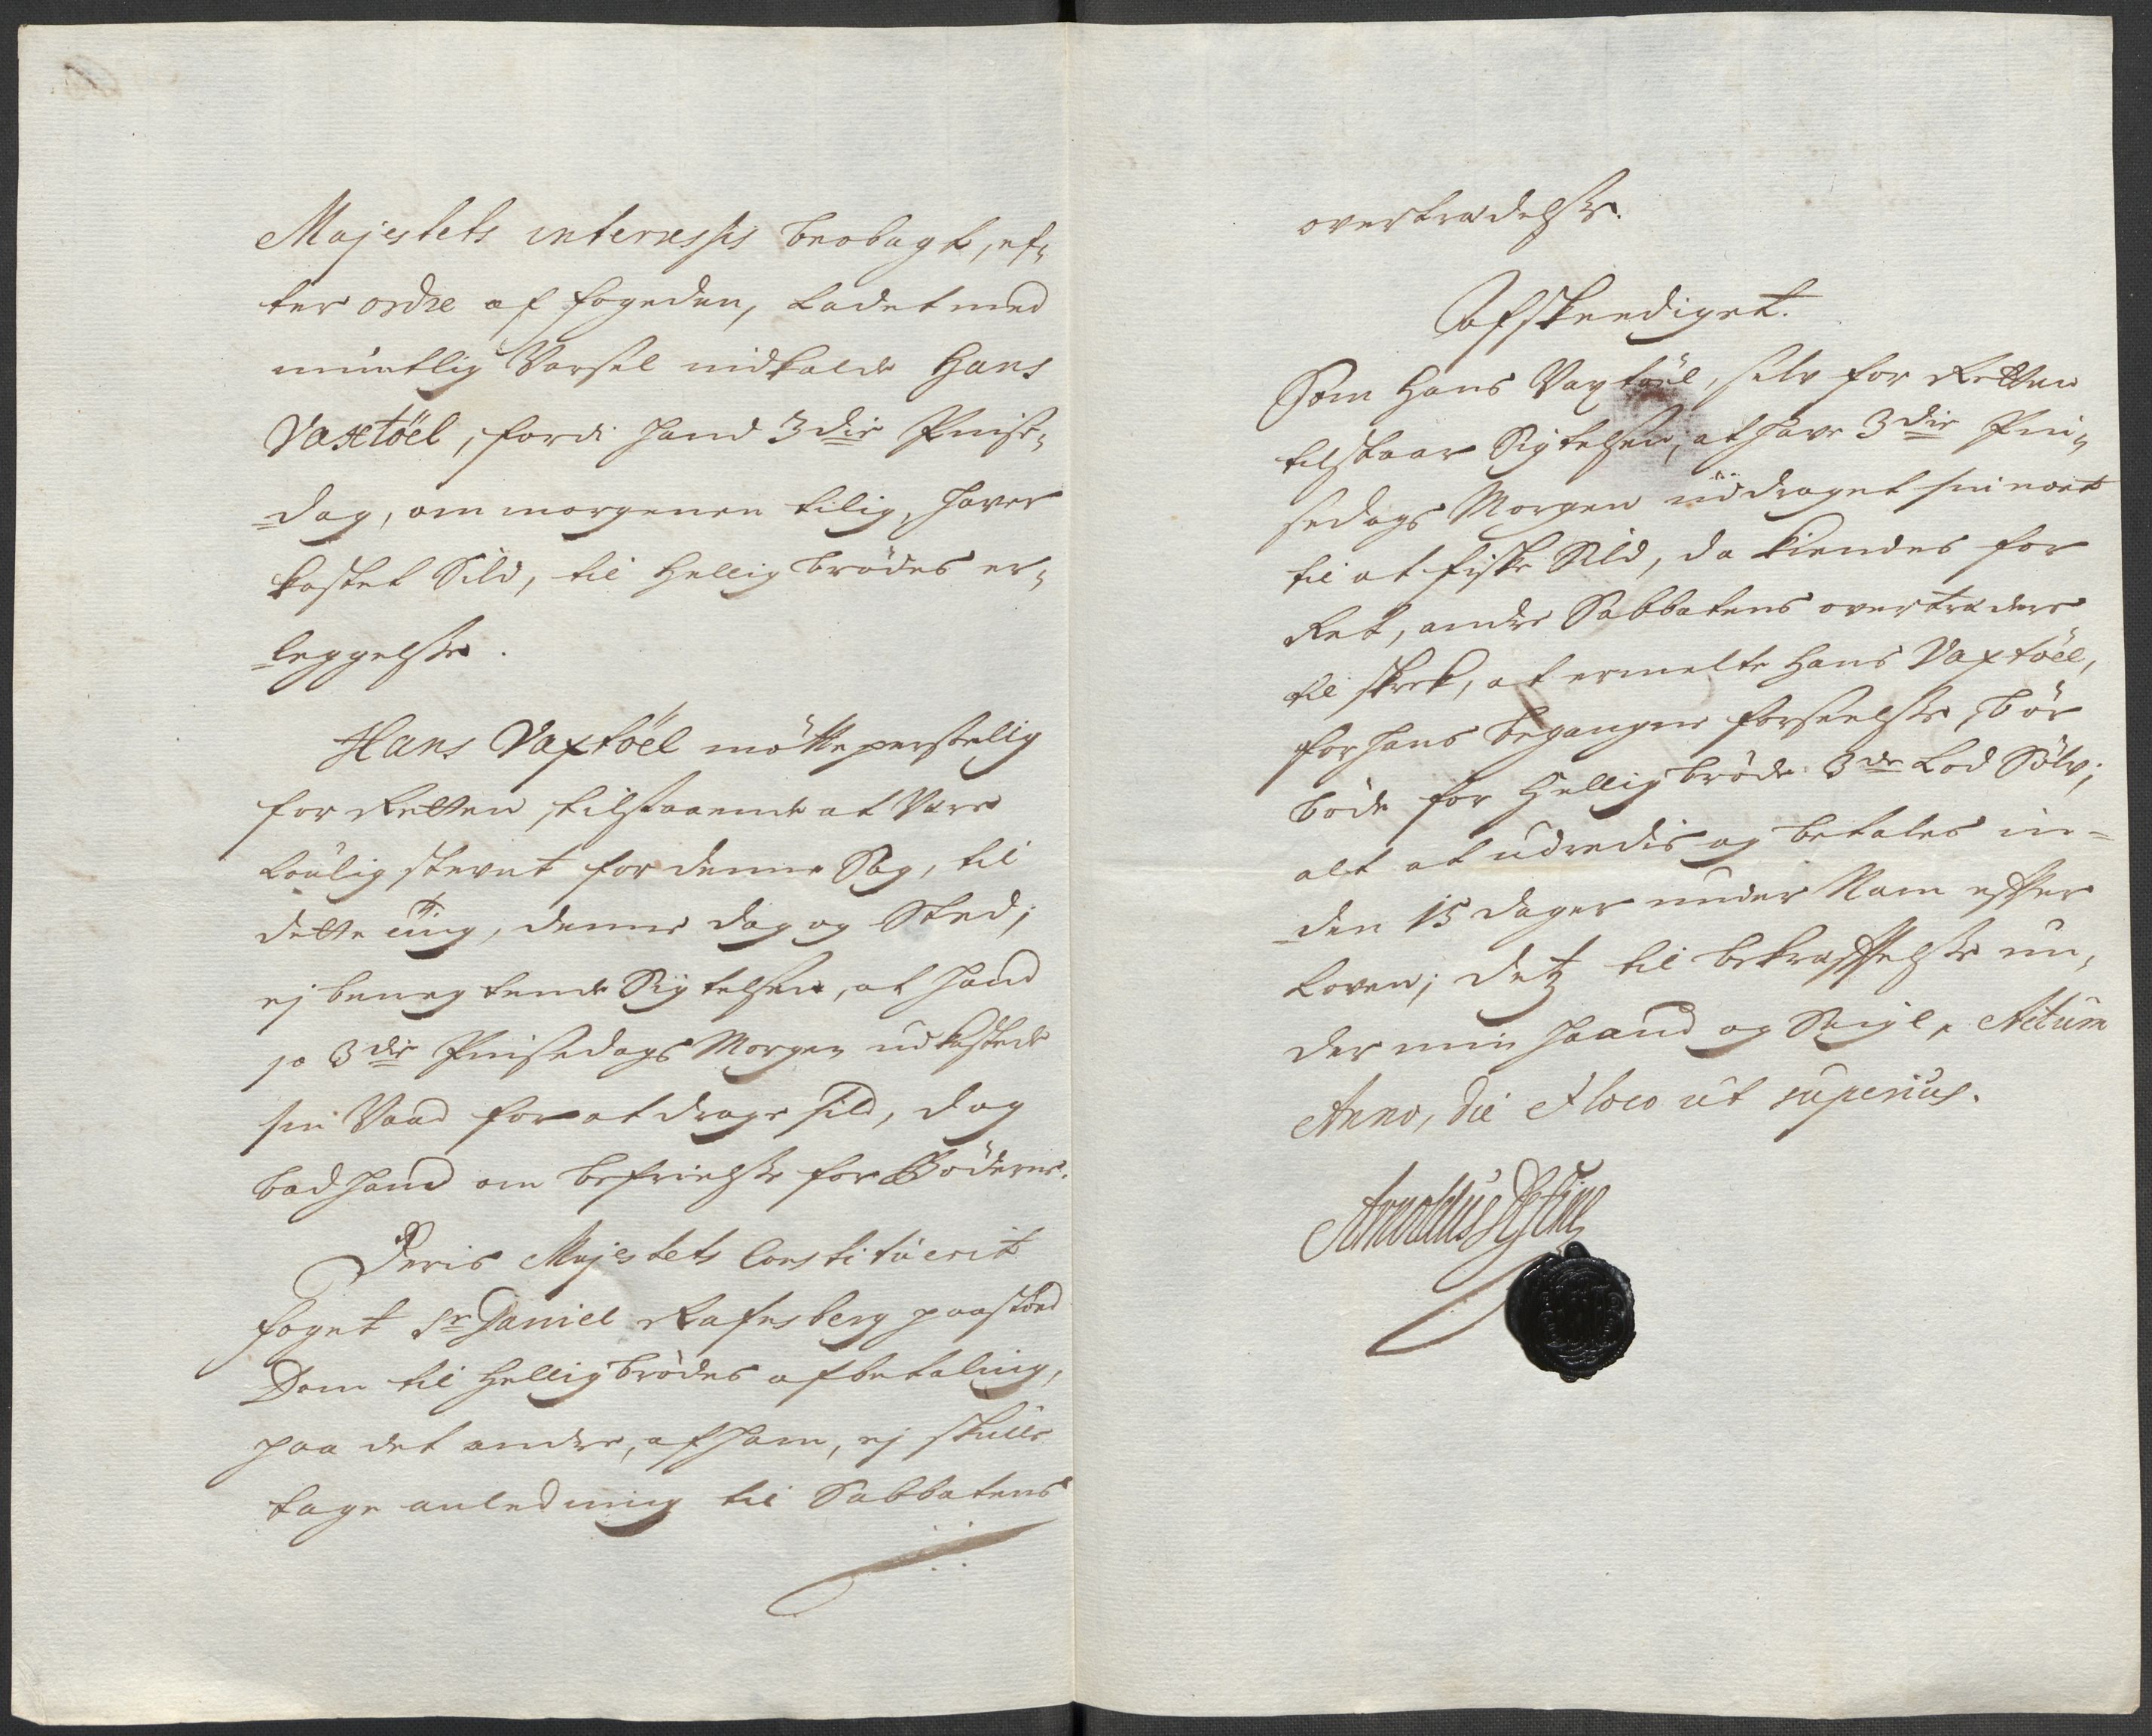 Majestets interesses beobagt, ef-
ter ordre af fogeden, ladet med
müntlig Varsel indkalde Hans
Vaxtöel, fordi hand 3die Pintze-
dag, om morgenen tilig, haver
kastet Sild, til Helligbrödes er-
leggelsse.
Hans Vaxtöel mötte perssonlig
for Retten, tilstaaende at Være
Loülig stevnt for denne Sag, til
dette ting, denne dag og Sted;
ej benegtende Sigtelsen, at hand
jo 3die Pintzedags Morgen üdkastede
sin Vaad for at drage sild, dog
bad hand om befrielsse for Böderne.
Deris Majestets Constitüerit
foget Sr Daniel Rafnsberg paastoed
Dom til Helligbrödes afbetaling,
paa det andre, af ham, ej skulle
tage anledning til Sabbatens
overtrædelsse.
Afskeediget.
Som Hans Vaxtöel, selv for Retten
tilstaar Sigtelsen, at have 3die Pin-
sedags Morgen üddraget sin noet
til at fiske Sild, da kiendes for
Ret, andre Sabbatens overtrædere
til skrek, at ermelte Hans Vaxtöel,
for hans begangne forseelsse, bör
böde for Helligbröde 3de Lod Sölv;
alt at üdredis og betales in-
den 15 dager under Nam effter
Loven; Detz til bekræfftelsse un-
der min haand og Seigl, Actum
Anno, die & loco üt superiüs.
Arnoldus